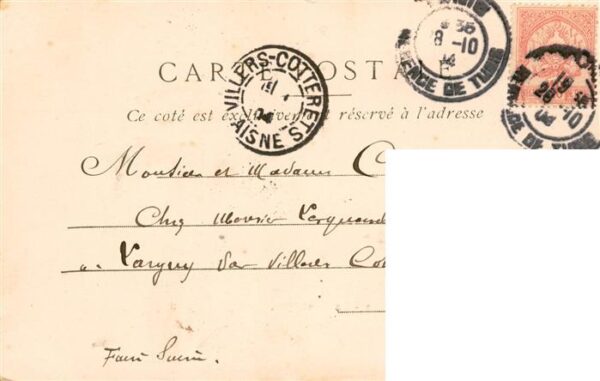 CARTE POSTALE
Ce coté est exclusivement réservé à l'adresse
VILLERS-COTTERETS
AISNE
04
8 35
8 -10
RÉGENCE DE TUNIS
19
10
04
DE TUNIS
Monsieur et Madame C
Chez Monsieur
à Largny sur Villers Cot
Faire Suivre.